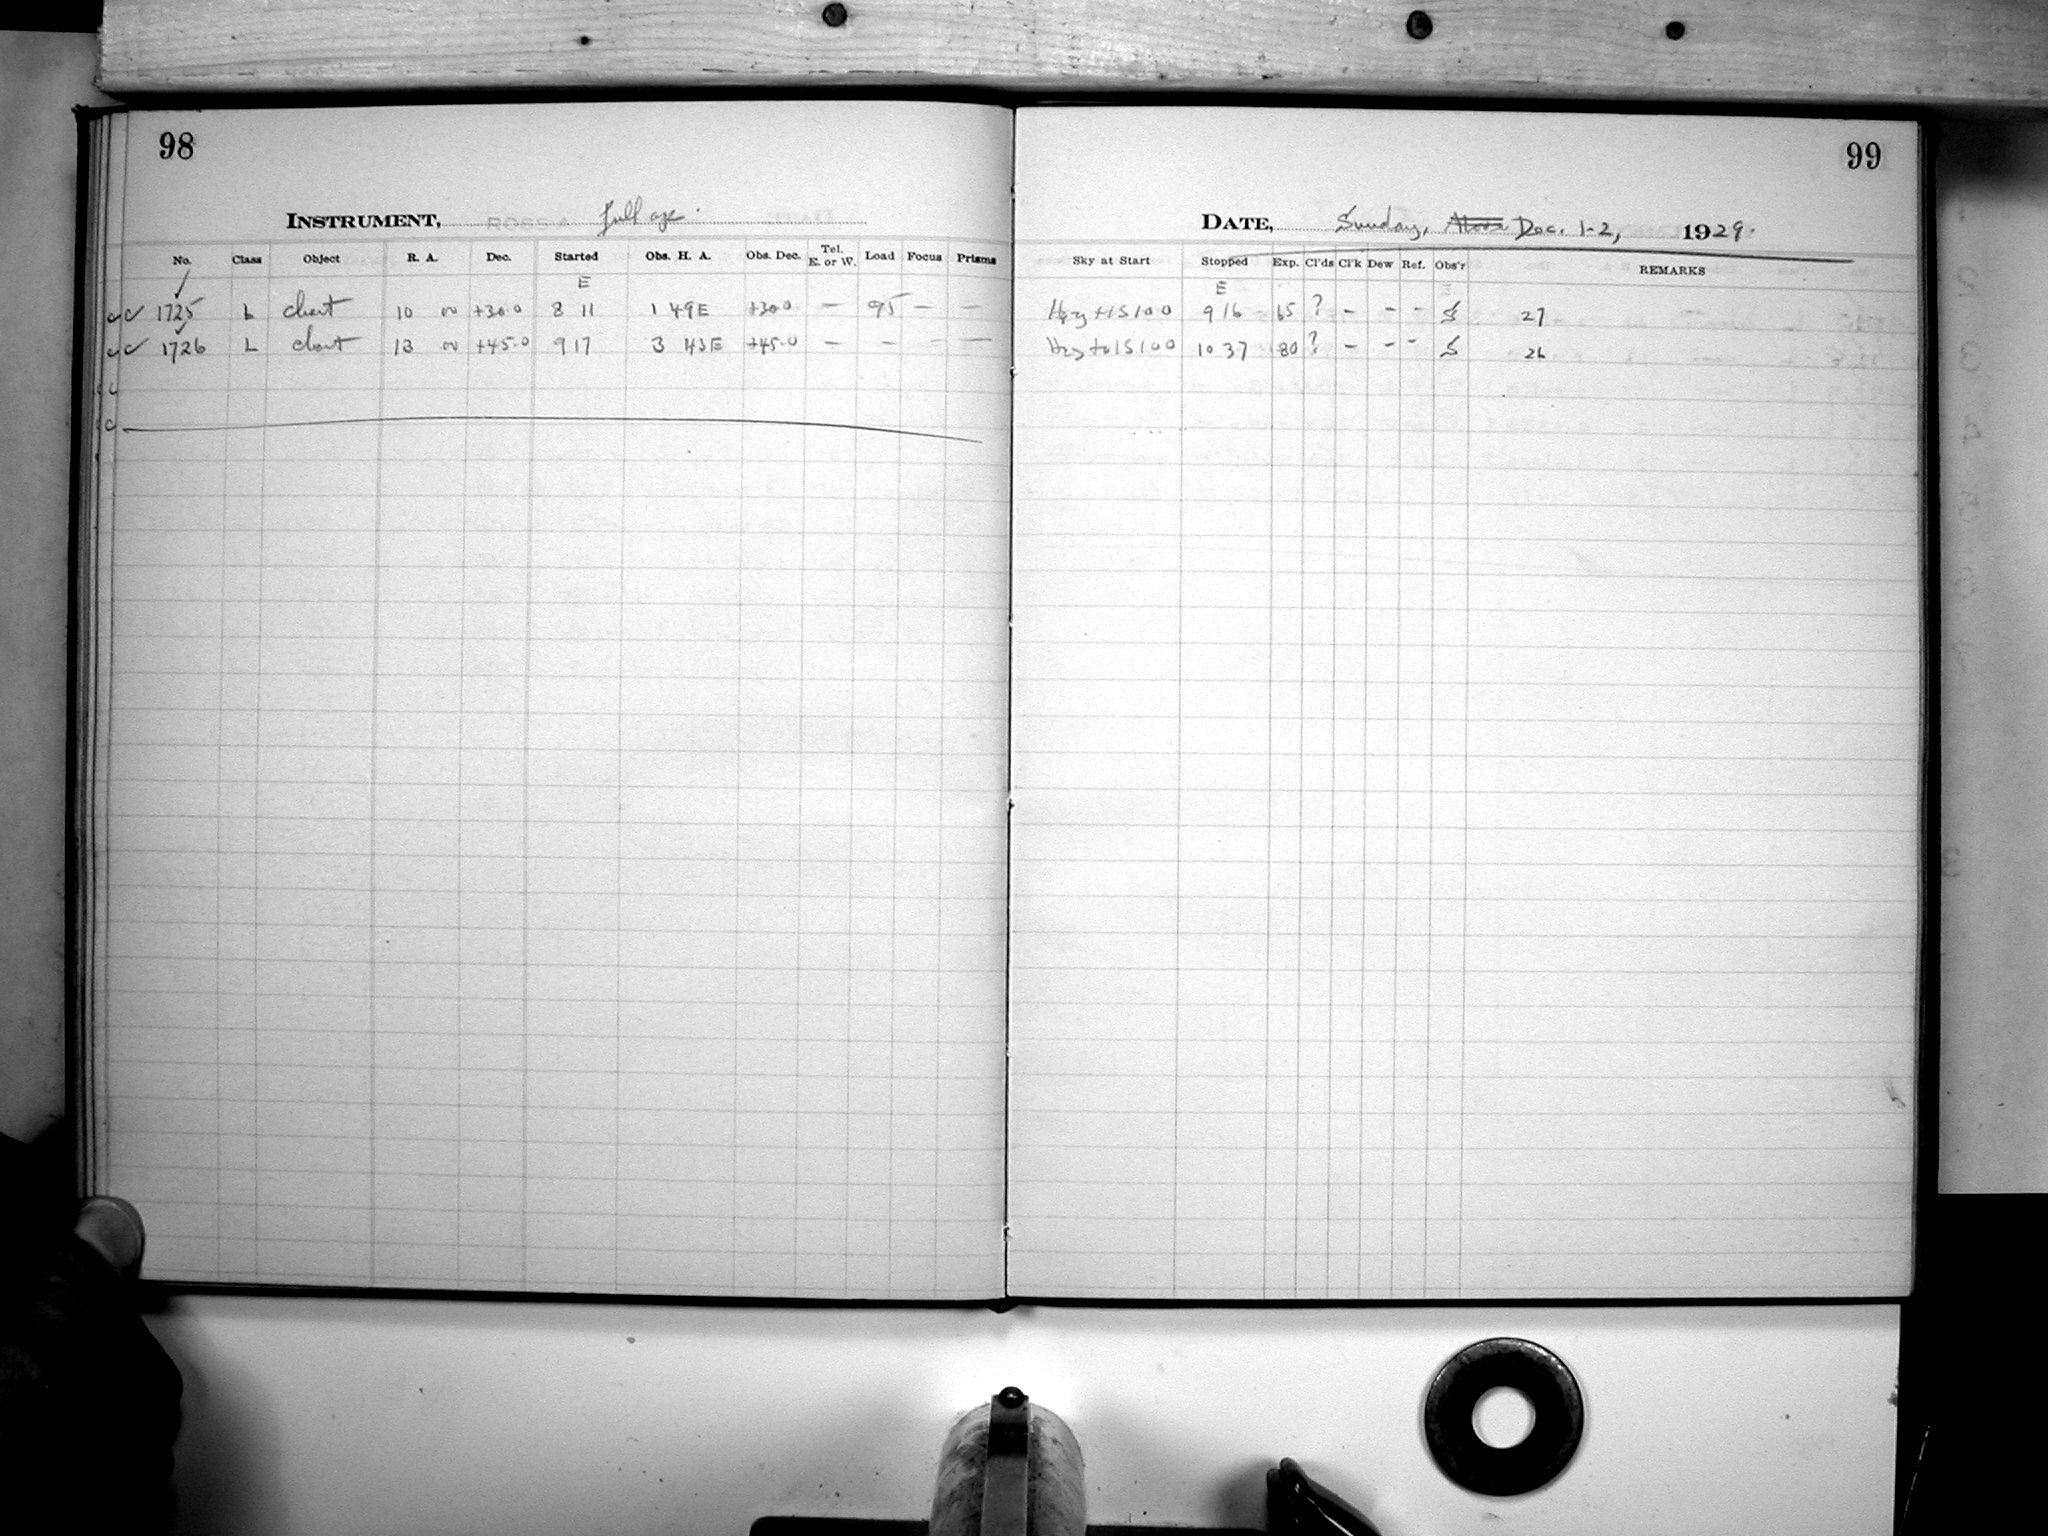 98
INSTRUMENT, full ap.
No. Class Object R. A. Dec. Started Obs. H. A. Obs. Dec. Tel. E. or W. Load Focus Prisms
E
1725 L chart 10 00 +30.0 8 11 1 49E +30.0 — 95 — —
1726 L chart 13 00 +45.0 9 17 3 43E +45.0 — — — —
99
DATE, Sunday, Dec. 1-2, 1929.
Sky at Start Stopped Exp. Cl'ds Cl'k Dew Ref. Obs'r REMARKS
E
Hzy 9 16 65 ? — — — S 27
Hzy to 10 37 80 ? — — — S 26